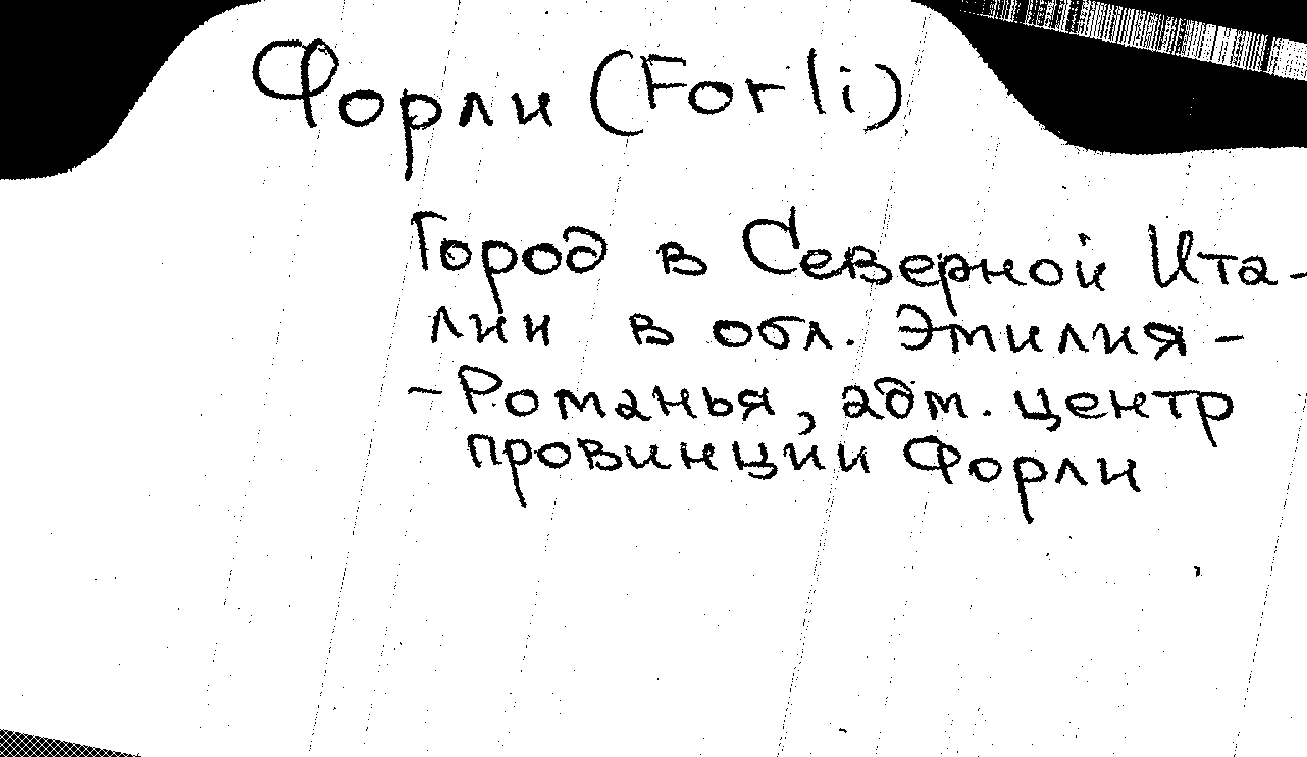 Форли (Forli)
Город в Северной Ита-
лии в обл. Эмилия -
- Романья, адм. центр
провинции Форли